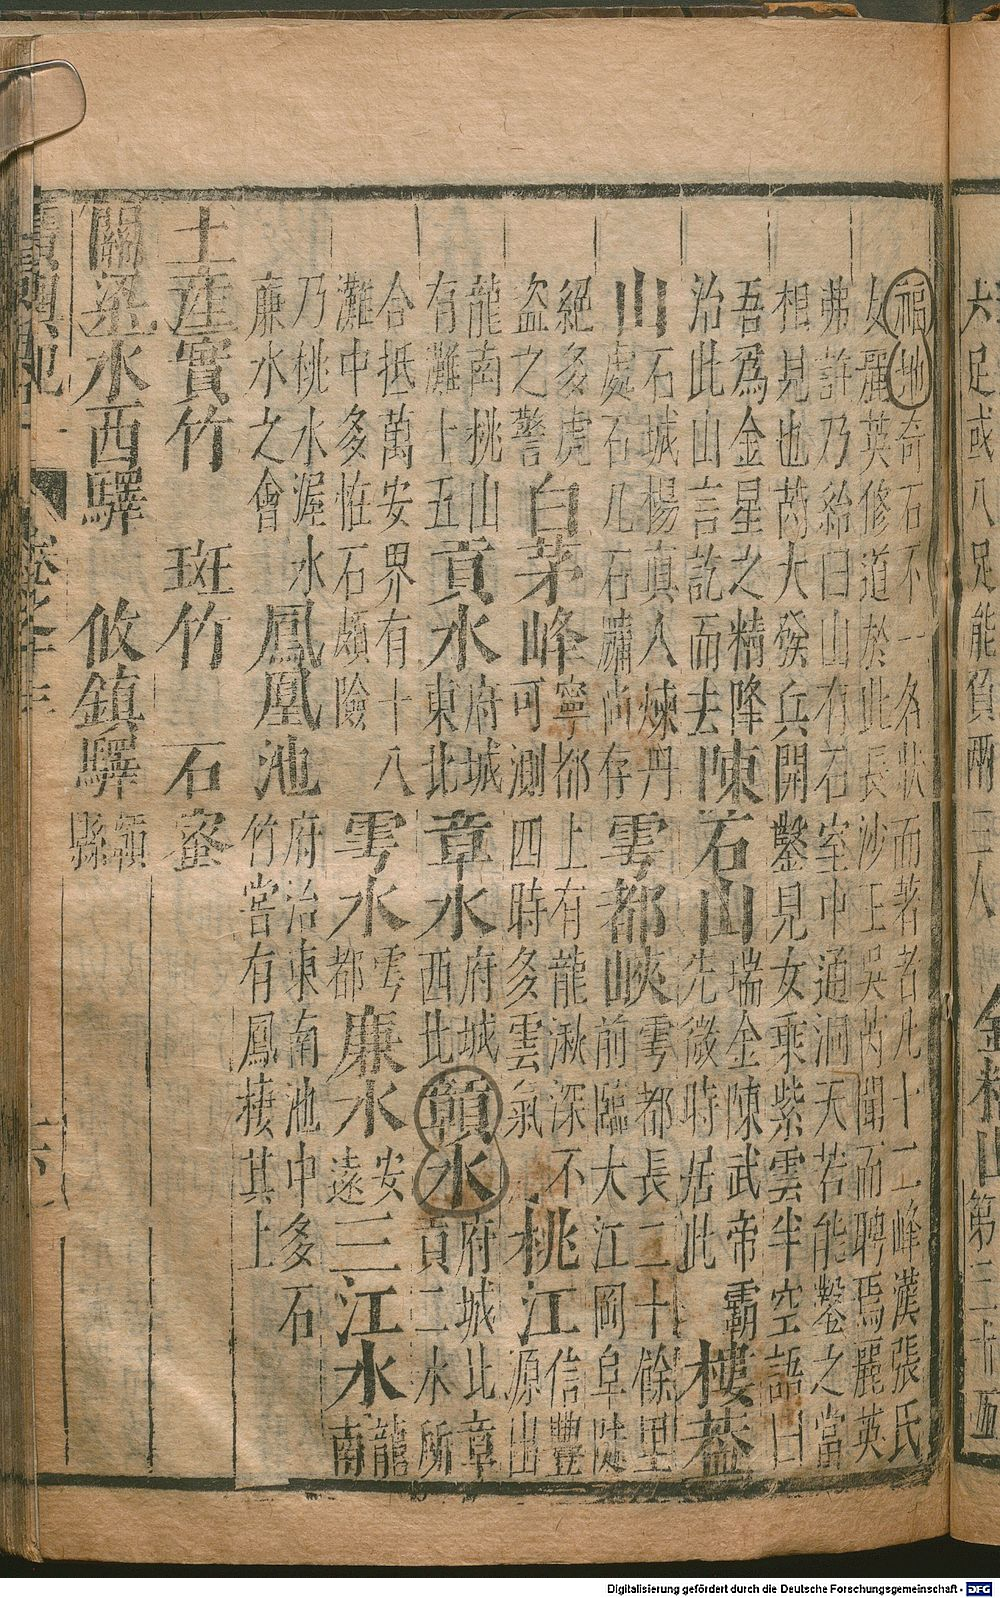 六足或八足能負兩三人 金精山 第三十五
福地奇石不一各狀而著者凡十二峰漢張氏
女麗英修道於此長沙王吳芮聞而聘焉麗英
弗許乃紿曰山有石室中通洞天若能鑿之當
相見也芮大發兵開鑿見女乘紫雲半空語曰
吾爲金星之精降
治此山言訖而去
陳石山
瑞金陳武帝霸
先微時居此
樓蓋
山
石城楊真人煉丹
處石几石牖尚存
雩都峽
雩都長二十餘里
前臨大江岡阜陡
絕多虎
盜之警
白茅峰
寧都上有龍湫深不
可測四時多雲氣
桃江
信豐
源出
龍南桃山
有灘十五
貢水
府城
東北
章水
府城
西北
贑水
府城北章
貢二水所
合抵萬安界有十八
灘中多怪石頗險
雩水
雩
都
廉水
安
遠
三江水
龍
南
乃桃水渥水
廉水之會
鳳凰池
府治東南池中多石
竹嘗有鳳棲其上
土產 實竹 斑竹 石蜜
關梁 水西驛 攸鎮驛
贑
縣
廣輿記 卷之十三
Digitalisierung gefördert durch die Deutsche Forschungsgemeinschaft - DFG